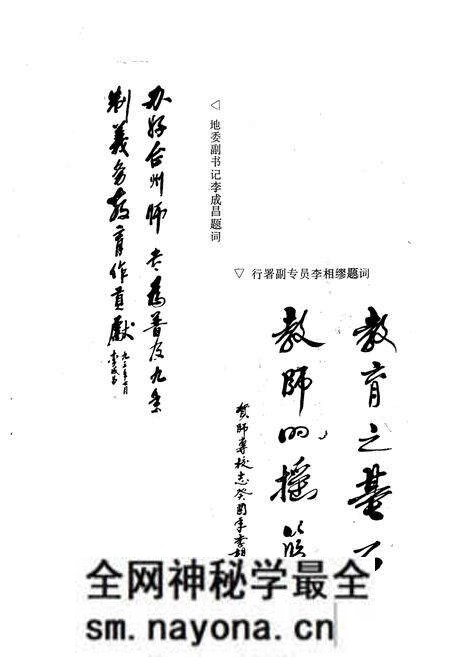 办好台州师专为普及九年
制义务教育作贡献
九三年七月
李成昌
◁ 地委副书记李成昌题词
▽ 行署副专员李相缪题词
教育之基
教师的摇篮
贺师专校志癸酉年李相
全网神秘学最全
sm.nayona.cn